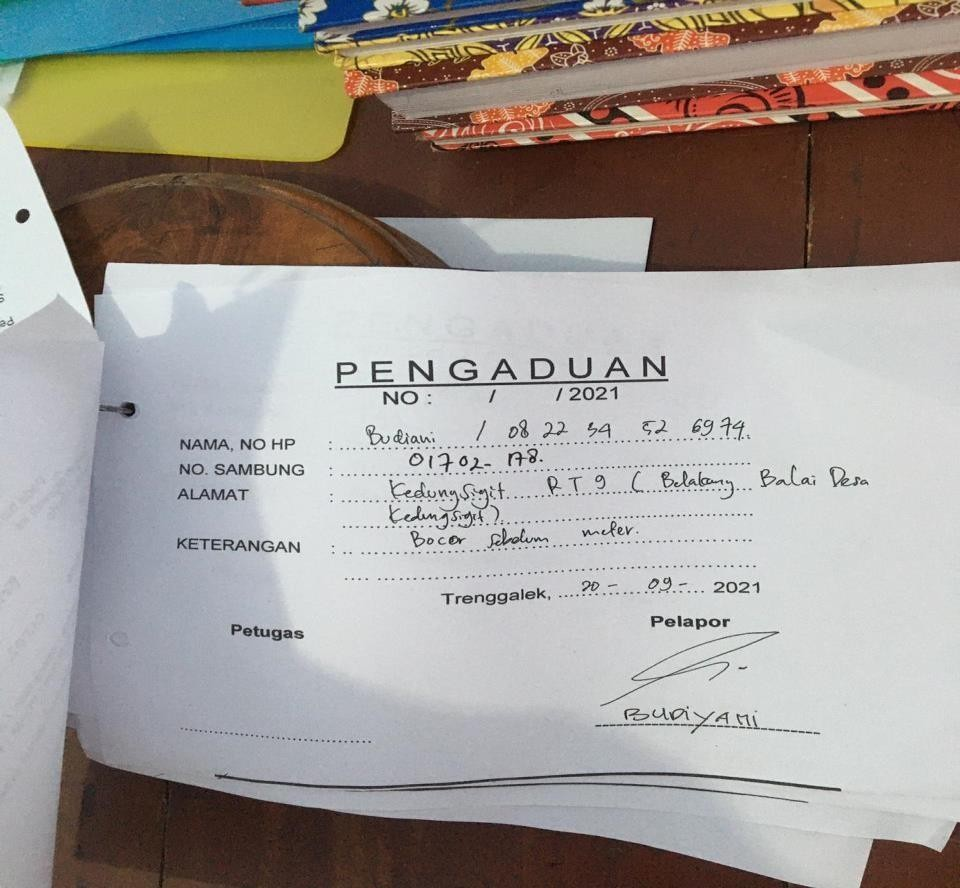 PENGADUAN
NO : / / 2021
NAMA, NO HP : Budiani / 08 22 34 52 6974
NO. SAMBUNG : 01702-178.
ALAMAT : Kedungsigit RT 9 ( Belakang Balai Desa
Kedungsigit)
KETERANGAN : Bocor sebelum meter.
Trenggalek, 20 - 09 - 2021
Petugas Pelapor
BUDIYANI